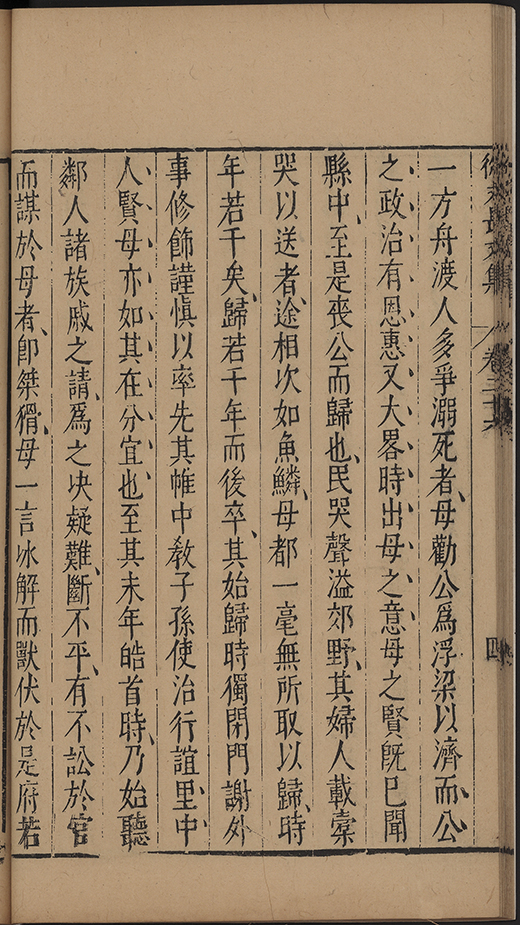 徐文長文集 卷二十六 四
一方舟渡人多爭溺死者母勸公爲浮梁以濟而公
之政治有恩惠又大畧時出母之意母之賢旣已聞
縣中至是喪公而歸也民哭聲溢郊野其婦人載橐
哭以送者途相次如魚鱗母都一毫無所取以歸時
年若干矣歸若干年而後卒其始歸時獨閉門謝外
事修飾謹愼以率先其帷中敎子孫使治行誼里中
人賢母亦如其在分宜也至其末年皓首時乃始聽
鄰人諸族戚之請爲之决疑難斷不平有不訟於官
而謀於母者卽桀猾母一言冰解而獸伏於是府若